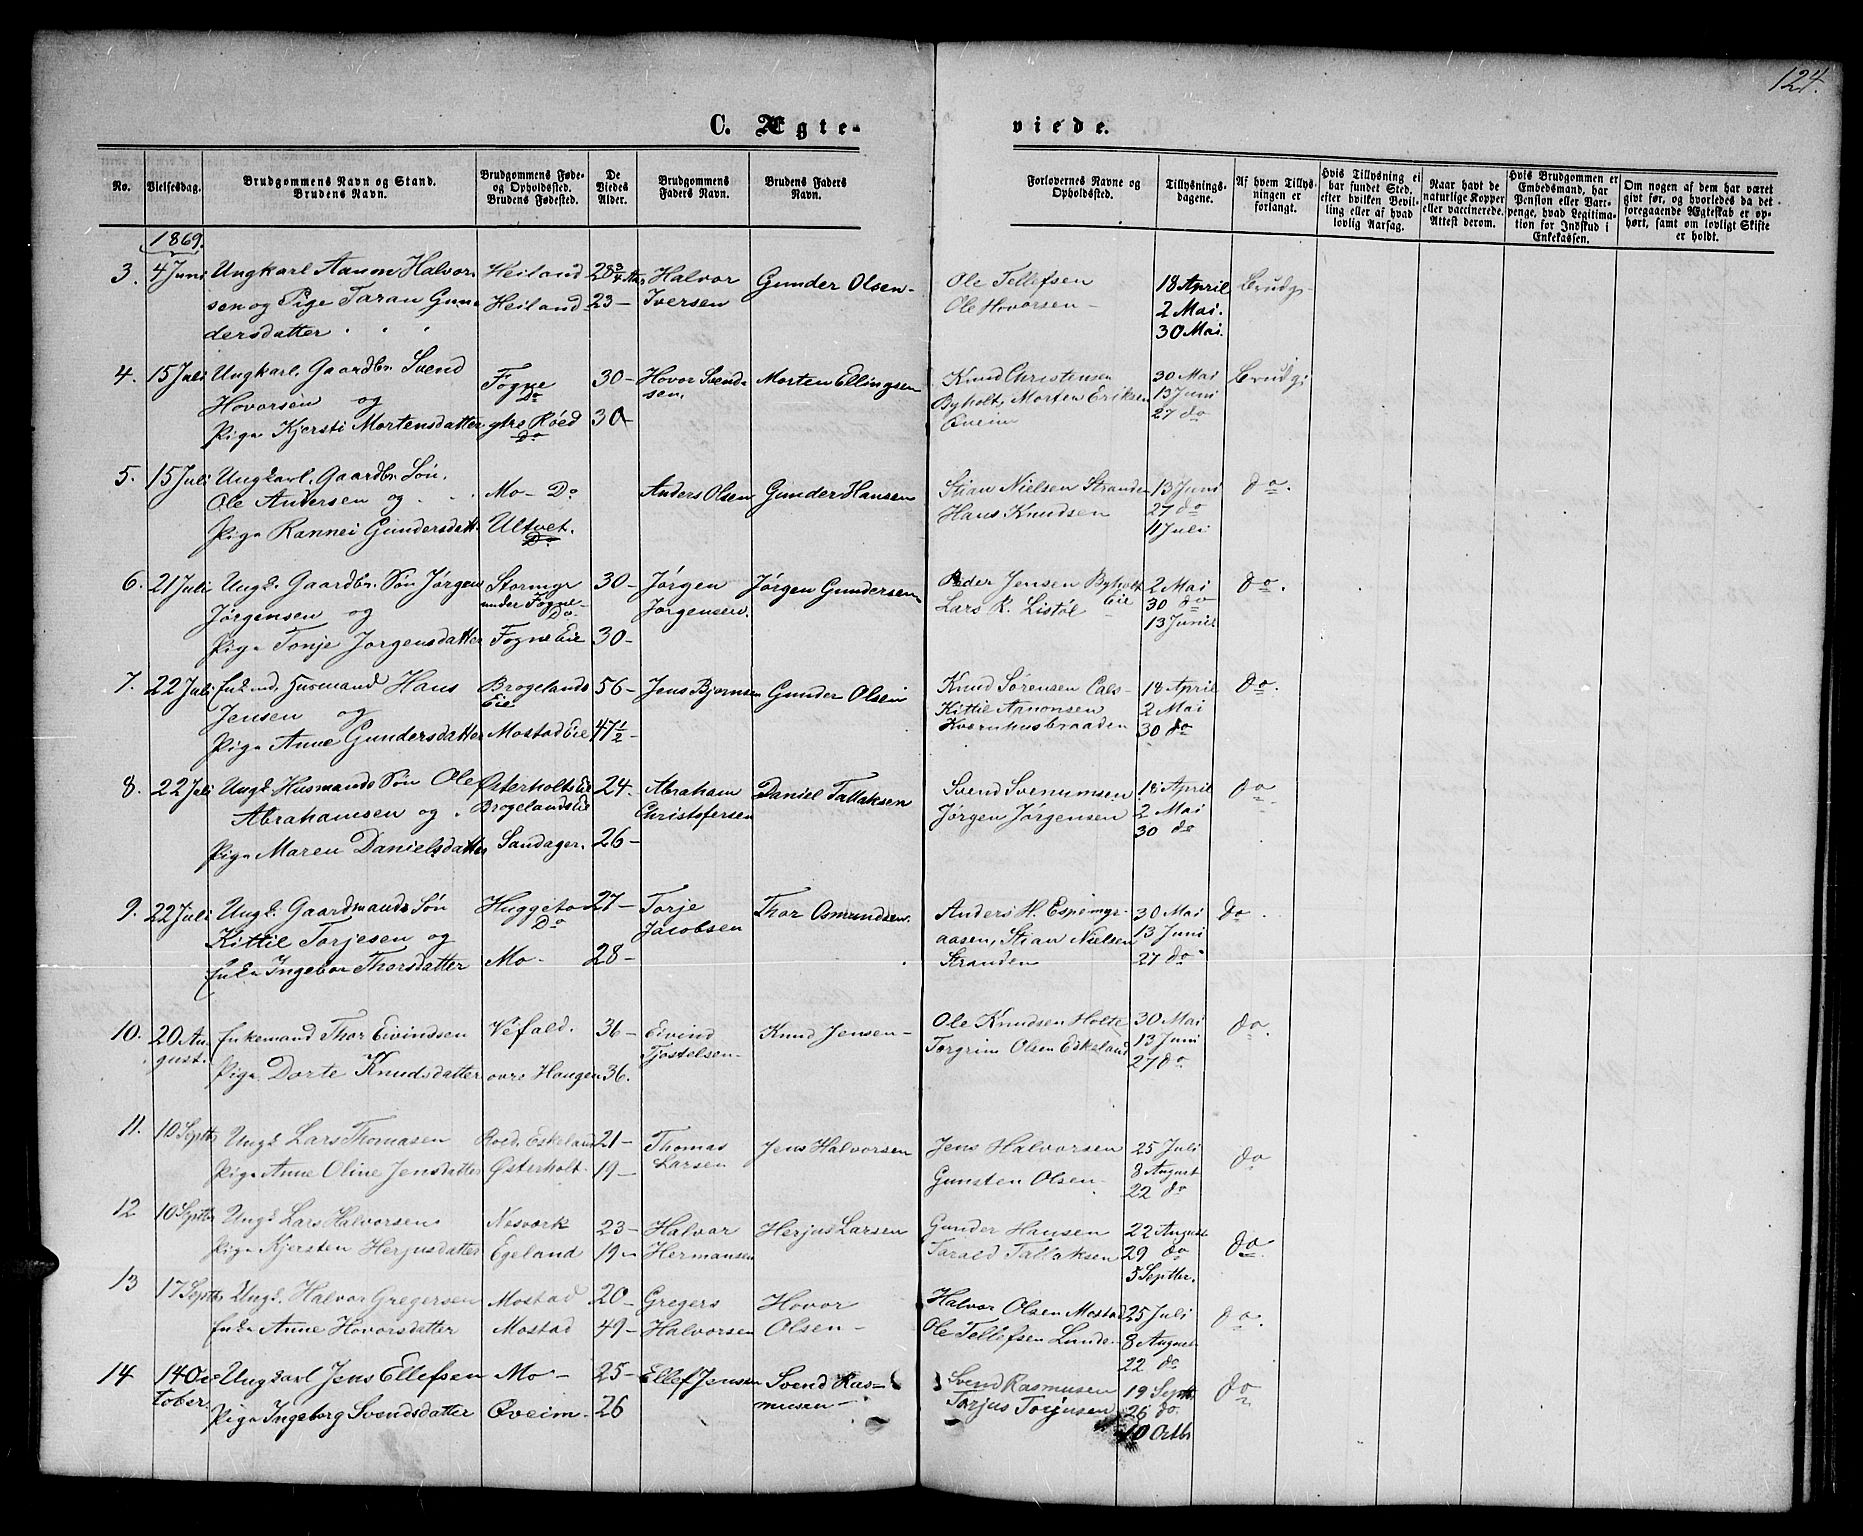 124.
C. Ægte-
viede.
No.
Vielsesdag.
Brudgommens Navn og Stand.
Brudens Navn.
Brudgommens Føde-
og Opholdssted.
Brudens Fødested.
De
Viedes
Alder.
Brudgommens
Faders Navn.
Brudens Faders
Navn.
Forlovernes Navne og
Opholdssted.
Tillysnings-
dagene.
Af hvem Tillys-
ningen er
forlangt.
Hvis Tillysning ei
har fundet Sted,
efter hvilken Bevil-
ling eller af hvad
lovlig Aarsag.
Naar havt de
naturlige Kopper
eller vaccinerede.
Attest derom.
Hvis Brudgommen er
Embedsmand, har
Pension eller Vart-
penge, hvad Legitima-
tion for Indskud i
Enkekassen.
Om nogen af dem har været
givt før, og hvorledes da det
foregaaende Ægteskab er op-
hørt, samt om lovligt Skifte
er holdt.
1869.
3. 4 Juni Ungkarl Aanon Halvor- Heiland 28 3/4 Aar Halvor Gunder Olsen- Ole Tellefsen 18 April Brudg-
sen og Pige Taran Gun- Heiland 23- Iversen Ole Hovorsen- 2 Mai.
dersdatter 30 Mai.
4. 15 Juli Ungkarl, Gaardbr. Svend Fogne 30- Hovor Svend- Morten Ellingsen Knud Christensen 30 Mai Brudg:
Hovorsen og Do sen. Byholt, Morten Eriksen 13 Juni
Pige Kjersti Mortensdatter ytre Röed 30- Øveim 27 do
Do
5. 15 Juli Ungkarl, Gaardbr. Søn. Mo- Do Anders Olsen Gunder Hansen Stian Nielsen Stranden 13 Juni do.
Ole Andersen og Hans Knudsen 27 do
Pige Rannei Gundersdatt. Ultvet. 11 Juli
Do
6. 21 Juli Ungk. Gaardbr. Søn Jørgen Stormyr 30- Jørgen Jørgen Gundersen Peder Jensen Byholt 2 Mai do.
Jørgensen og under Fogne- Jorgensen. Lars R. Listöl Eie 30 do
Do. 13 Juni
Pige Tonje Jorgensdatter Fogne Eie 30-
7. 22 Juli Enkmd, Husmand Hans Brogelands 56- Jens Bjornsen Gunder Olsen Knud Sørensen 18 April do.
Jensen og Eie Kittil Aanonsen 2 Mai
Pige Anne Gundersdatter Mostad Eie 47 1/2- Kvernhusbraaden 30 do
8. 22 Juli Ungk. Husmands Søn Ole Østerholts Eie 24- Abraham Daniel Tallaksen Svend Svenumsen 18 April do
Abrahamsen og Brogelands Eie Christofersen Jørgen Jørgensen 2 Mai
Pige Maren Danielsdatter Sandager. 26- 30 do
9. 22 Juli Ungk. Gaardmands Søn Huggeto 27- Torje Thor Osmundsen. Anders H. Espemyr- 30 Mai do.
Kittil Torjesen og Do Jacobsen aasen, Stian Nielsen 13 Juni
Enke Ingebor Thorsdatter Mo- 28- Stranden 27 do
10. 20 Au- Enkemand Thor Eivindsen Vefald. 36- Eivind Knud Jensen- Ole Knudsen Holte 30 Mai do.
gust. Tjostelsen- Torgrim Olsen Eskeland 13 Juni
Pige Dorte Knudsdatter ovre Haugen 36. 27 do
11. 10 Septbr Ungk Lars Thomasen Roed, Eskeland 21- Thomas Jens Halvorsen Jens Halvorsen 25 Juli do
Pige Anne Oline Jensdatter Østerholt- 19- Larsen Gunsten Olsen- 8 August
22 do
12 10 Septbr Ungk Lars Halvorsen Nesverk 23- Halvor Herjus Larsen Gunder Hansen 22 August do.
Pige Kjersten Herjusdatter Egeland 19- Hermansen Tarald Tallaksen 29 do
5 Septbr.
13 17 Septbr Ungk. Halvor Gregersen Mostad 20- Gregers Hovor Halvor Olsen Mostad 25 Juli do.
Enke Anne Hovorsdatter Mostad 49- Halvorsen Olsen- Ole Tellefsen Lunde- 8 August
22 do
14 14 Oc- Ungkarl Jens Ellefsen Mo- 25- Ellef Jensen Svend Ras- Svend Rasmusen 19 Septb. do
tober. Pige Ingeborg Svendsdatter Øveim- 26 musen- Torjus Torjusen 26 do.
10 Octb.